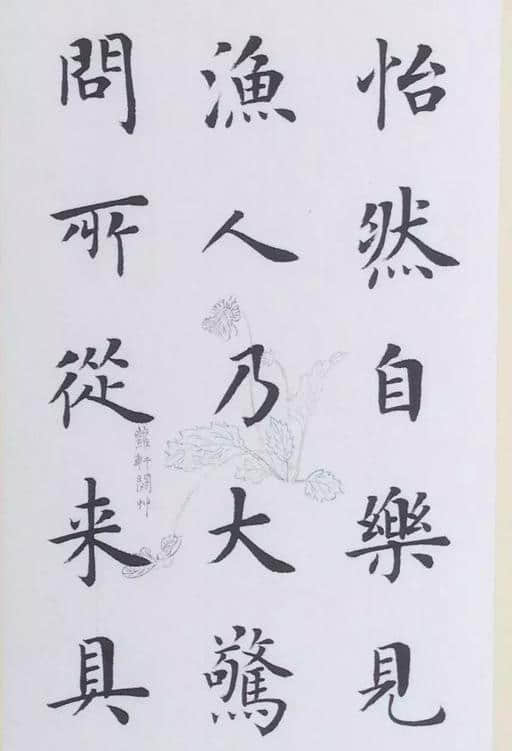 怡然自樂見
漁人乃大驚
問所從来具
蘿軒閒艸